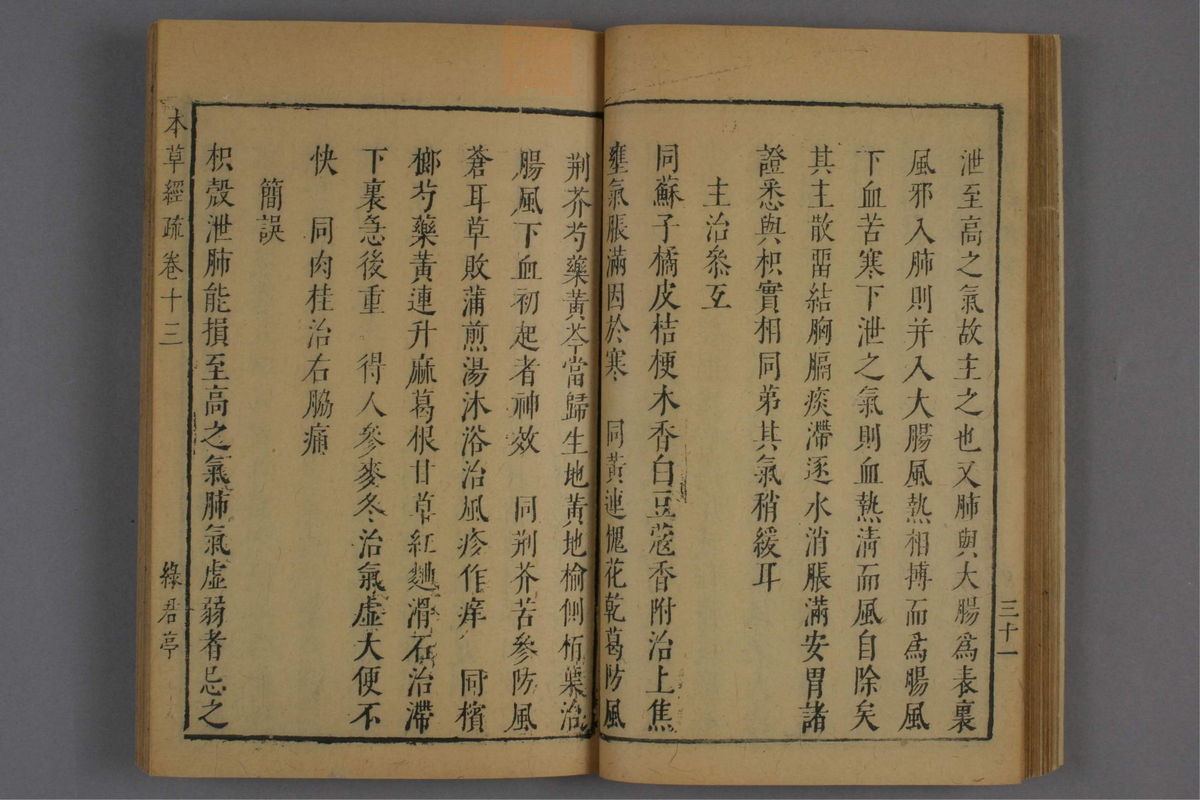 泄至高之氣故主之也又肺與大腸爲表裏
風邪入肺則并入大腸風熱相搏而爲腸風
下血苦寒下泄之氣則血熱清而風自除矣
其主散畱結胸膈痰滯逐水消脹滿安胃諸
證悉與枳實相同弟其氣稍緩耳
主治叅互
同蘇子橘皮桔梗木香白豆蔻香附治上焦
壅氣脹滿因於寒 同黃連槐花乾葛防風
三十一
荆芥芍藥黃芩當歸生地黃地榆側栢葉治
腸風下血初起者神效 同荆芥苦參防風
蒼耳草敗蒲煎湯沐浴治風疹作痒 同檳
榔芍藥黃連升麻葛根甘草紅麯滑石治滯
下裏急後重 得人參麥冬治氣虛大便不
快 同肉桂治右脇痛
簡誤
枳殼泄肺能損至高之氣肺氣虛弱者忌之
本草經疏卷十三
綠君亭